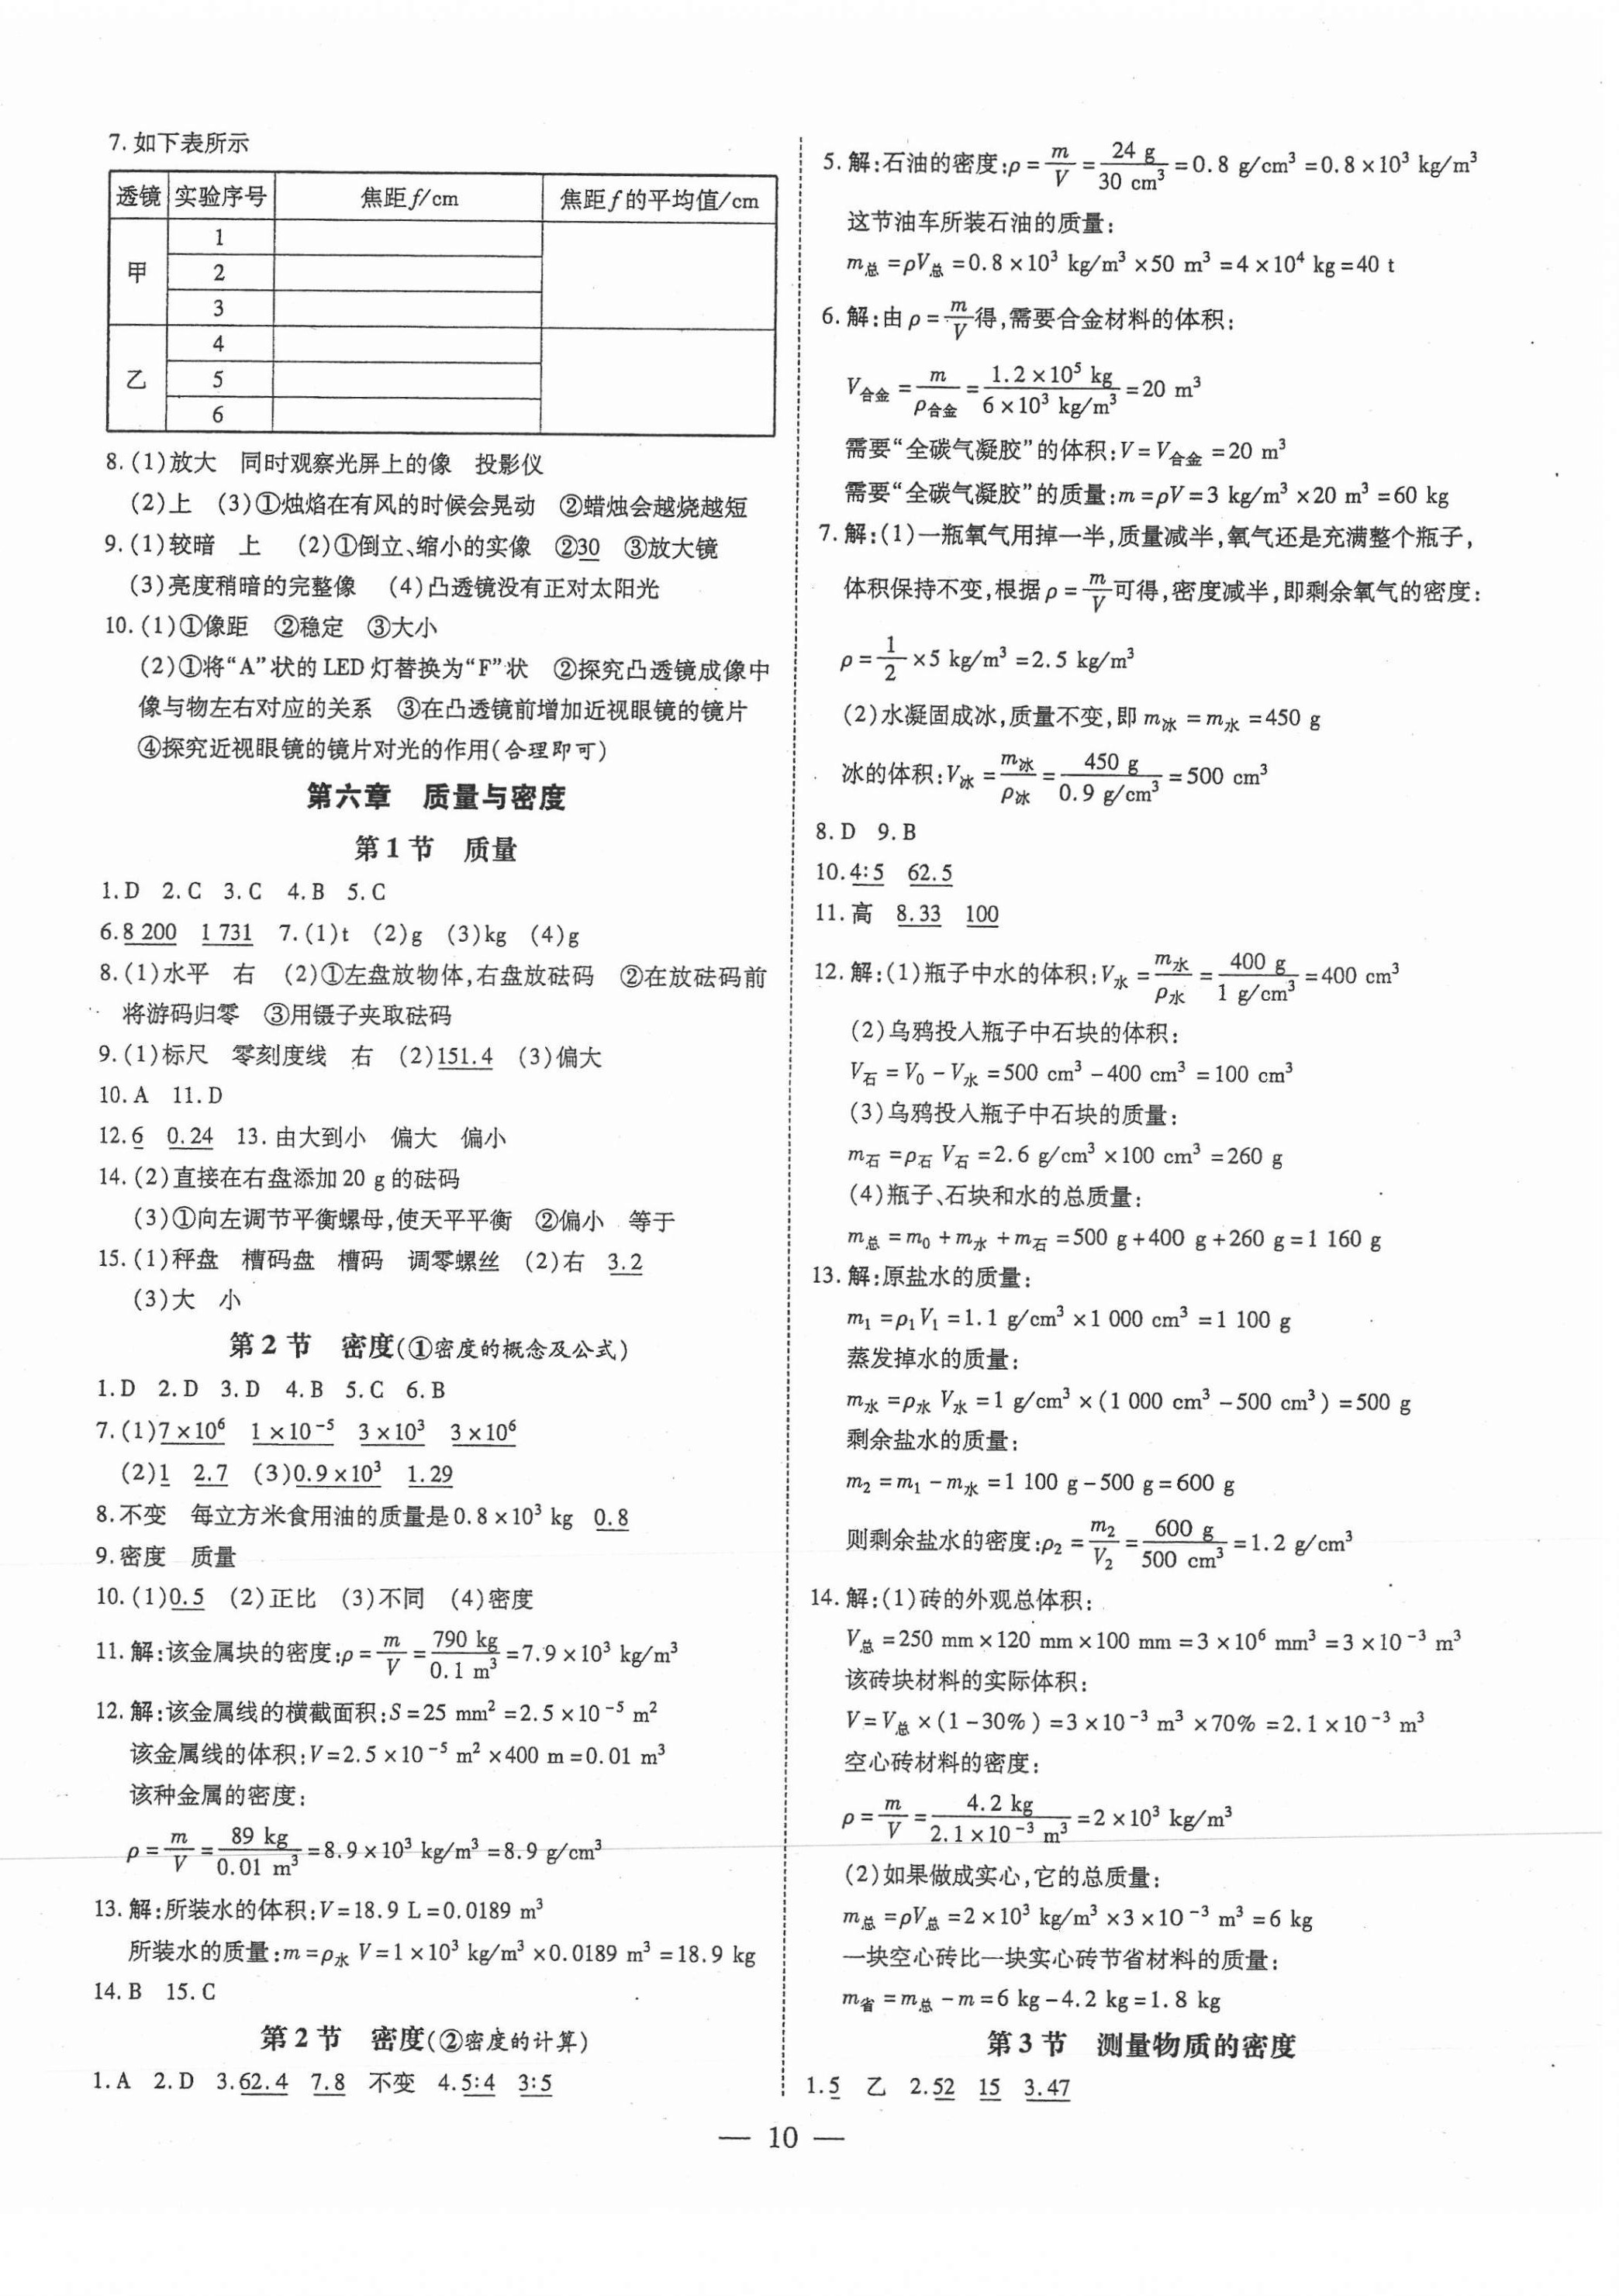 7.如下表所示
透镜 实验序号 焦距f/cm 焦距f的平均值/cm
甲 1
2
3
乙 4
5
6
8.(1)放大 同时观察光屏上的像 投影仪
(2)上 (3)①烛焰在有风的时候会晃动 ②蜡烛会越烧越短
9.(1)较暗 上 (2)①倒立、缩小的实像 ②30 ③放大镜
(3)亮度稍暗的完整像 (4)凸透镜没有正对太阳光
10.(1)①像距 ②稳定 ③大小
(2)①将“A”状的LED灯替换为“F”状 ②探究凸透镜成像中
像与物左右对应的关系 ③在凸透镜前增加近视眼镜的镜片
④探究近视眼镜的镜片对光的作用(合理即可)
第六章 质量与密度
第1节 质量
1.D 2.C 3.C 4.B 5.C
6.8 200 1 731 7.(1)t (2)g (3)kg (4)g
8.(1)水平 右 (2)①左盘放物体,右盘放砝码 ②在放砝码前
将游码归零 ③用镊子夹取砝码
9.(1)标尺 零刻度线 右 (2)151.4 (3)偏大
10.A 11.D
12.6 0.24 13.由大到小 偏大 偏小
14.(2)直接在右盘添加20 g的砝码
(3)①向左调节平衡螺母,使天平平衡 ②偏小 等于
15.(1)秤盘 槽码盘 槽码 调零螺丝 (2)右 3.2
(3)大 小
第2节 密度(①密度的概念及公式)
1.D 2.D 3.D 4.B 5.C 6.B
7.(1)7×10⁶ 1×10⁻⁵ 3×10³ 3×10⁶
(2)1 2.7 (3)0.9×10³ 1.29
8.不变 每立方米食用油的质量是0.8×10³ kg 0.8
9.密度 质量
10.(1)0.5 (2)正比 (3)不同 (4)密度
11.解:该金属块的密度:ρ=m/V=790 kg/0.1 m³=7.9×10³ kg/m³
12.解:该金属线的横截面积:S=25 mm²=2.5×10⁻⁵ m²
该金属线的体积:V=2.5×10⁻⁵ m²×400 m=0.01 m³
该种金属的密度:
ρ=m/V=89 kg/0.01 m³=8.9×10³ kg/m³=8.9 g/cm³
13.解:所装水的体积:V=18.9 L=0.0189 m³
所装水的质量:m=ρ水V=1×10³ kg/m³×0.0189 m³=18.9 kg
14.B 15.C
第2节 密度(②密度的计算)
1.A 2.D 3.62.4 7.8 不变 4.5:4 3:5
5.解:石油的密度:ρ=m/V=24 g/30 cm³=0.8 g/cm³=0.8×10³ kg/m³
这节油车所装石油的质量:
m总=ρV总=0.8×10³ kg/m³×50 m³=4×10⁴ kg=40 t
6.解:由ρ=m/V得,需要合金材料的体积:
V合金=m/ρ合金=1.2×10⁵ kg/6×10³ kg/m³=20 m³
需要“全碳气凝胶”的体积:V=V合金=20 m³
需要“全碳气凝胶”的质量:m=ρV=3 kg/m³×20 m³=60 kg
7.解:(1)一瓶氧气用掉一半,质量减半,氧气还是充满整个瓶子,
体积保持不变,根据ρ=m/V可得,密度减半,即剩余氧气的密度:
ρ=1/2×5 kg/m³=2.5 kg/m³
(2)水凝固成冰,质量不变,即m冰=m水=450 g
冰的体积:V冰=m冰/ρ冰=450 g/0.9 g/cm³=500 cm³
8.D 9.B
10.4:5 62.5
11.高 8.33 100
12.解:(1)瓶子中水的体积:V水=m水/ρ水=400 g/1 g/cm³=400 cm³
(2)乌鸦投入瓶子中石块的体积:
V石=V₀-V水=500 cm³-400 cm³=100 cm³
(3)乌鸦投入瓶子中石块的质量:
m石=ρ石V石=2.6 g/cm³×100 cm³=260 g
(4)瓶子、石块和水的总质量:
m总=m₀+m水+m石=500 g+400 g+260 g=1 160 g
13.解:原盐水的质量:
m₁=ρ₁V₁=1.1 g/cm³×1 000 cm³=1 100 g
蒸发掉水的质量:
m水=ρ水V水=1 g/cm³×(1 000 cm³-500 cm³)=500 g
剩余盐水的质量:
m₂=m₁-m水=1 100 g-500 g=600 g
则剩余盐水的密度:ρ₂=m₂/V₂=600 g/500 cm³=1.2 g/cm³
14.解:(1)砖的外观总体积:
V总=250 mm×120 mm×100 mm=3×10⁶ mm³=3×10⁻³ m³
该砖块材料的实际体积:
V=V总×(1-30%)=3×10⁻³ m³×70%=2.1×10⁻³ m³
空心砖材料的密度:
ρ=m/V=4.2 kg/2.1×10⁻³ m³=2×10³ kg/m³
(2)如果做成实心,它的总质量:
m总=ρV总=2×10³ kg/m³×3×10⁻³ m³=6 kg
一块空心砖比一块实心砖节省材料的质量:
m省=m总-m=6 kg-4.2 kg=1.8 kg
第3节 测量物质的密度
1.5 乙 2.52 15 3.47
— 10 —